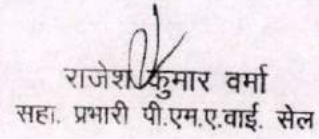 राजेश कुमार वर्मा
सहा. प्रभारी पी.एम.ए.वाई. सेल